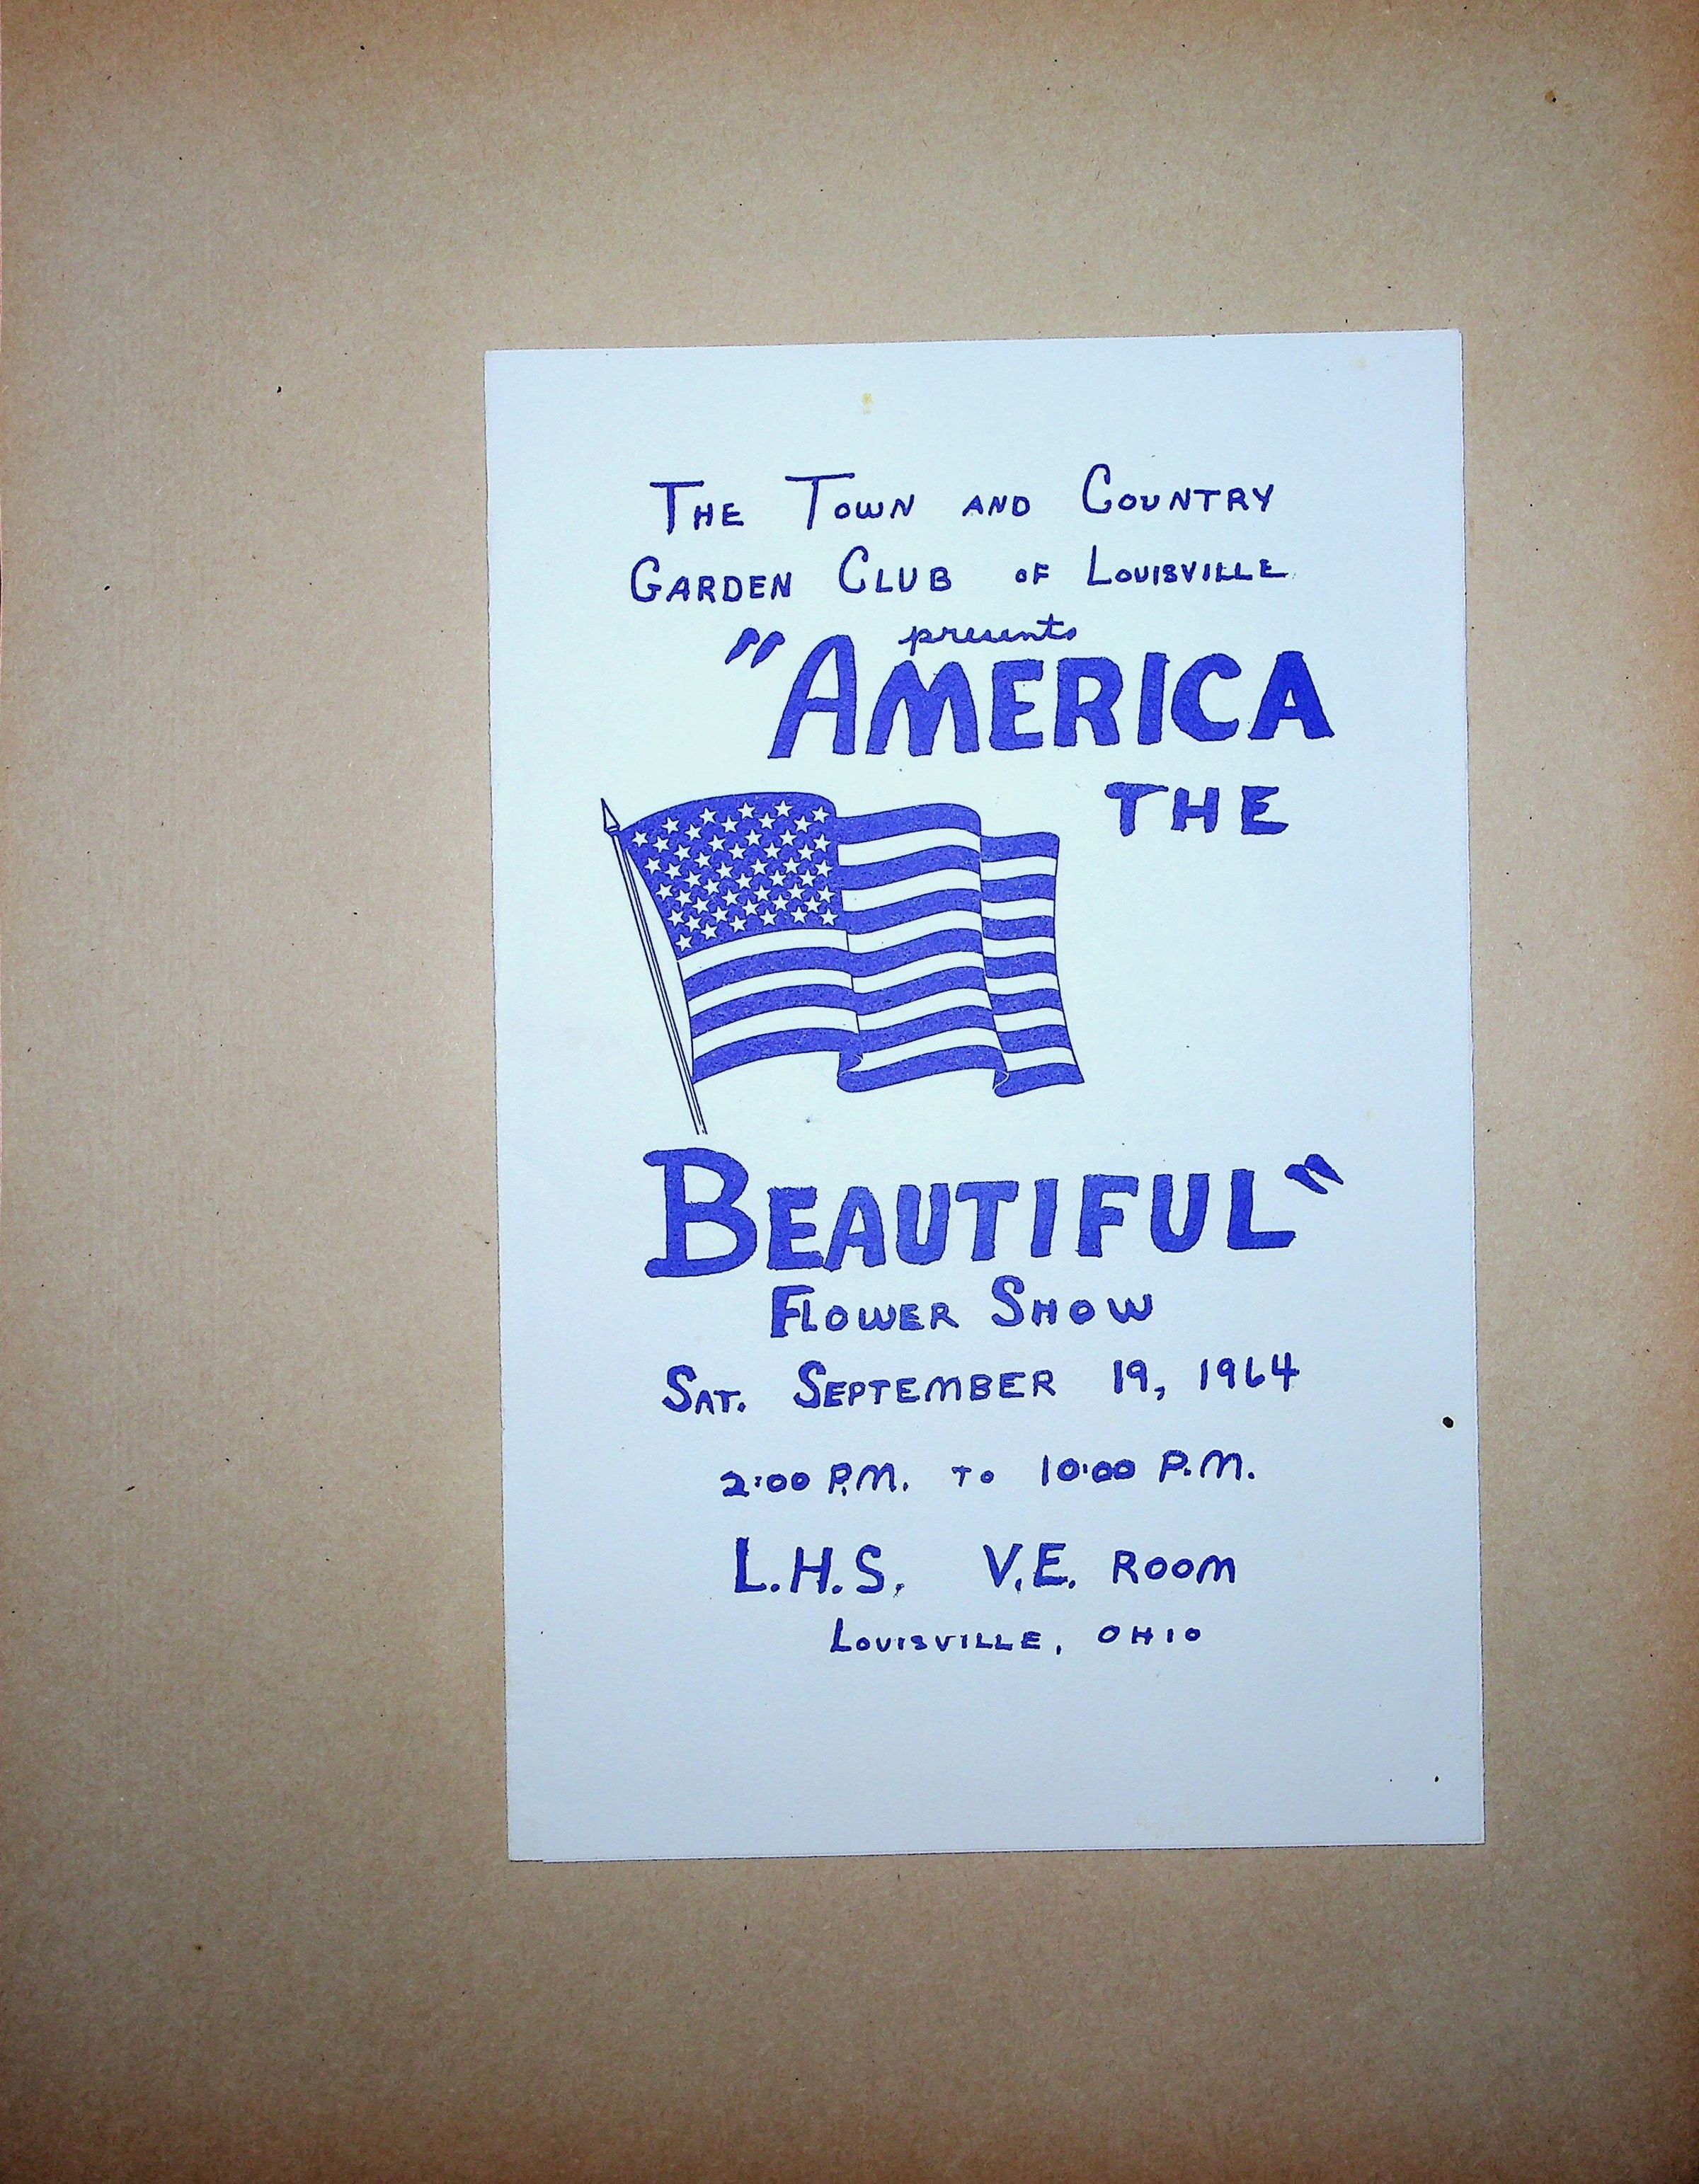 THE TOWN AND COUNTRY
GARDEN CLUB OF LOUISVILLE
presents
"AMERICA
THE
BEAUTIFUL"
FLOWER SHOW
SAT. SEPTEMBER 19, 1964
2:00 P.M. TO 10:00 P.M.
L.H.S. V.E. ROOM
LOUISVILLE, OHIO